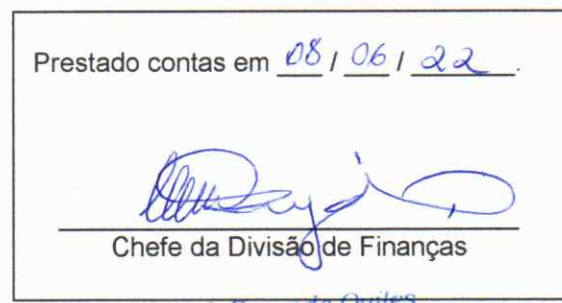 Prestado contas em 08 / 06 / 22.
Chefe da Divisão de Finanças
Quiles